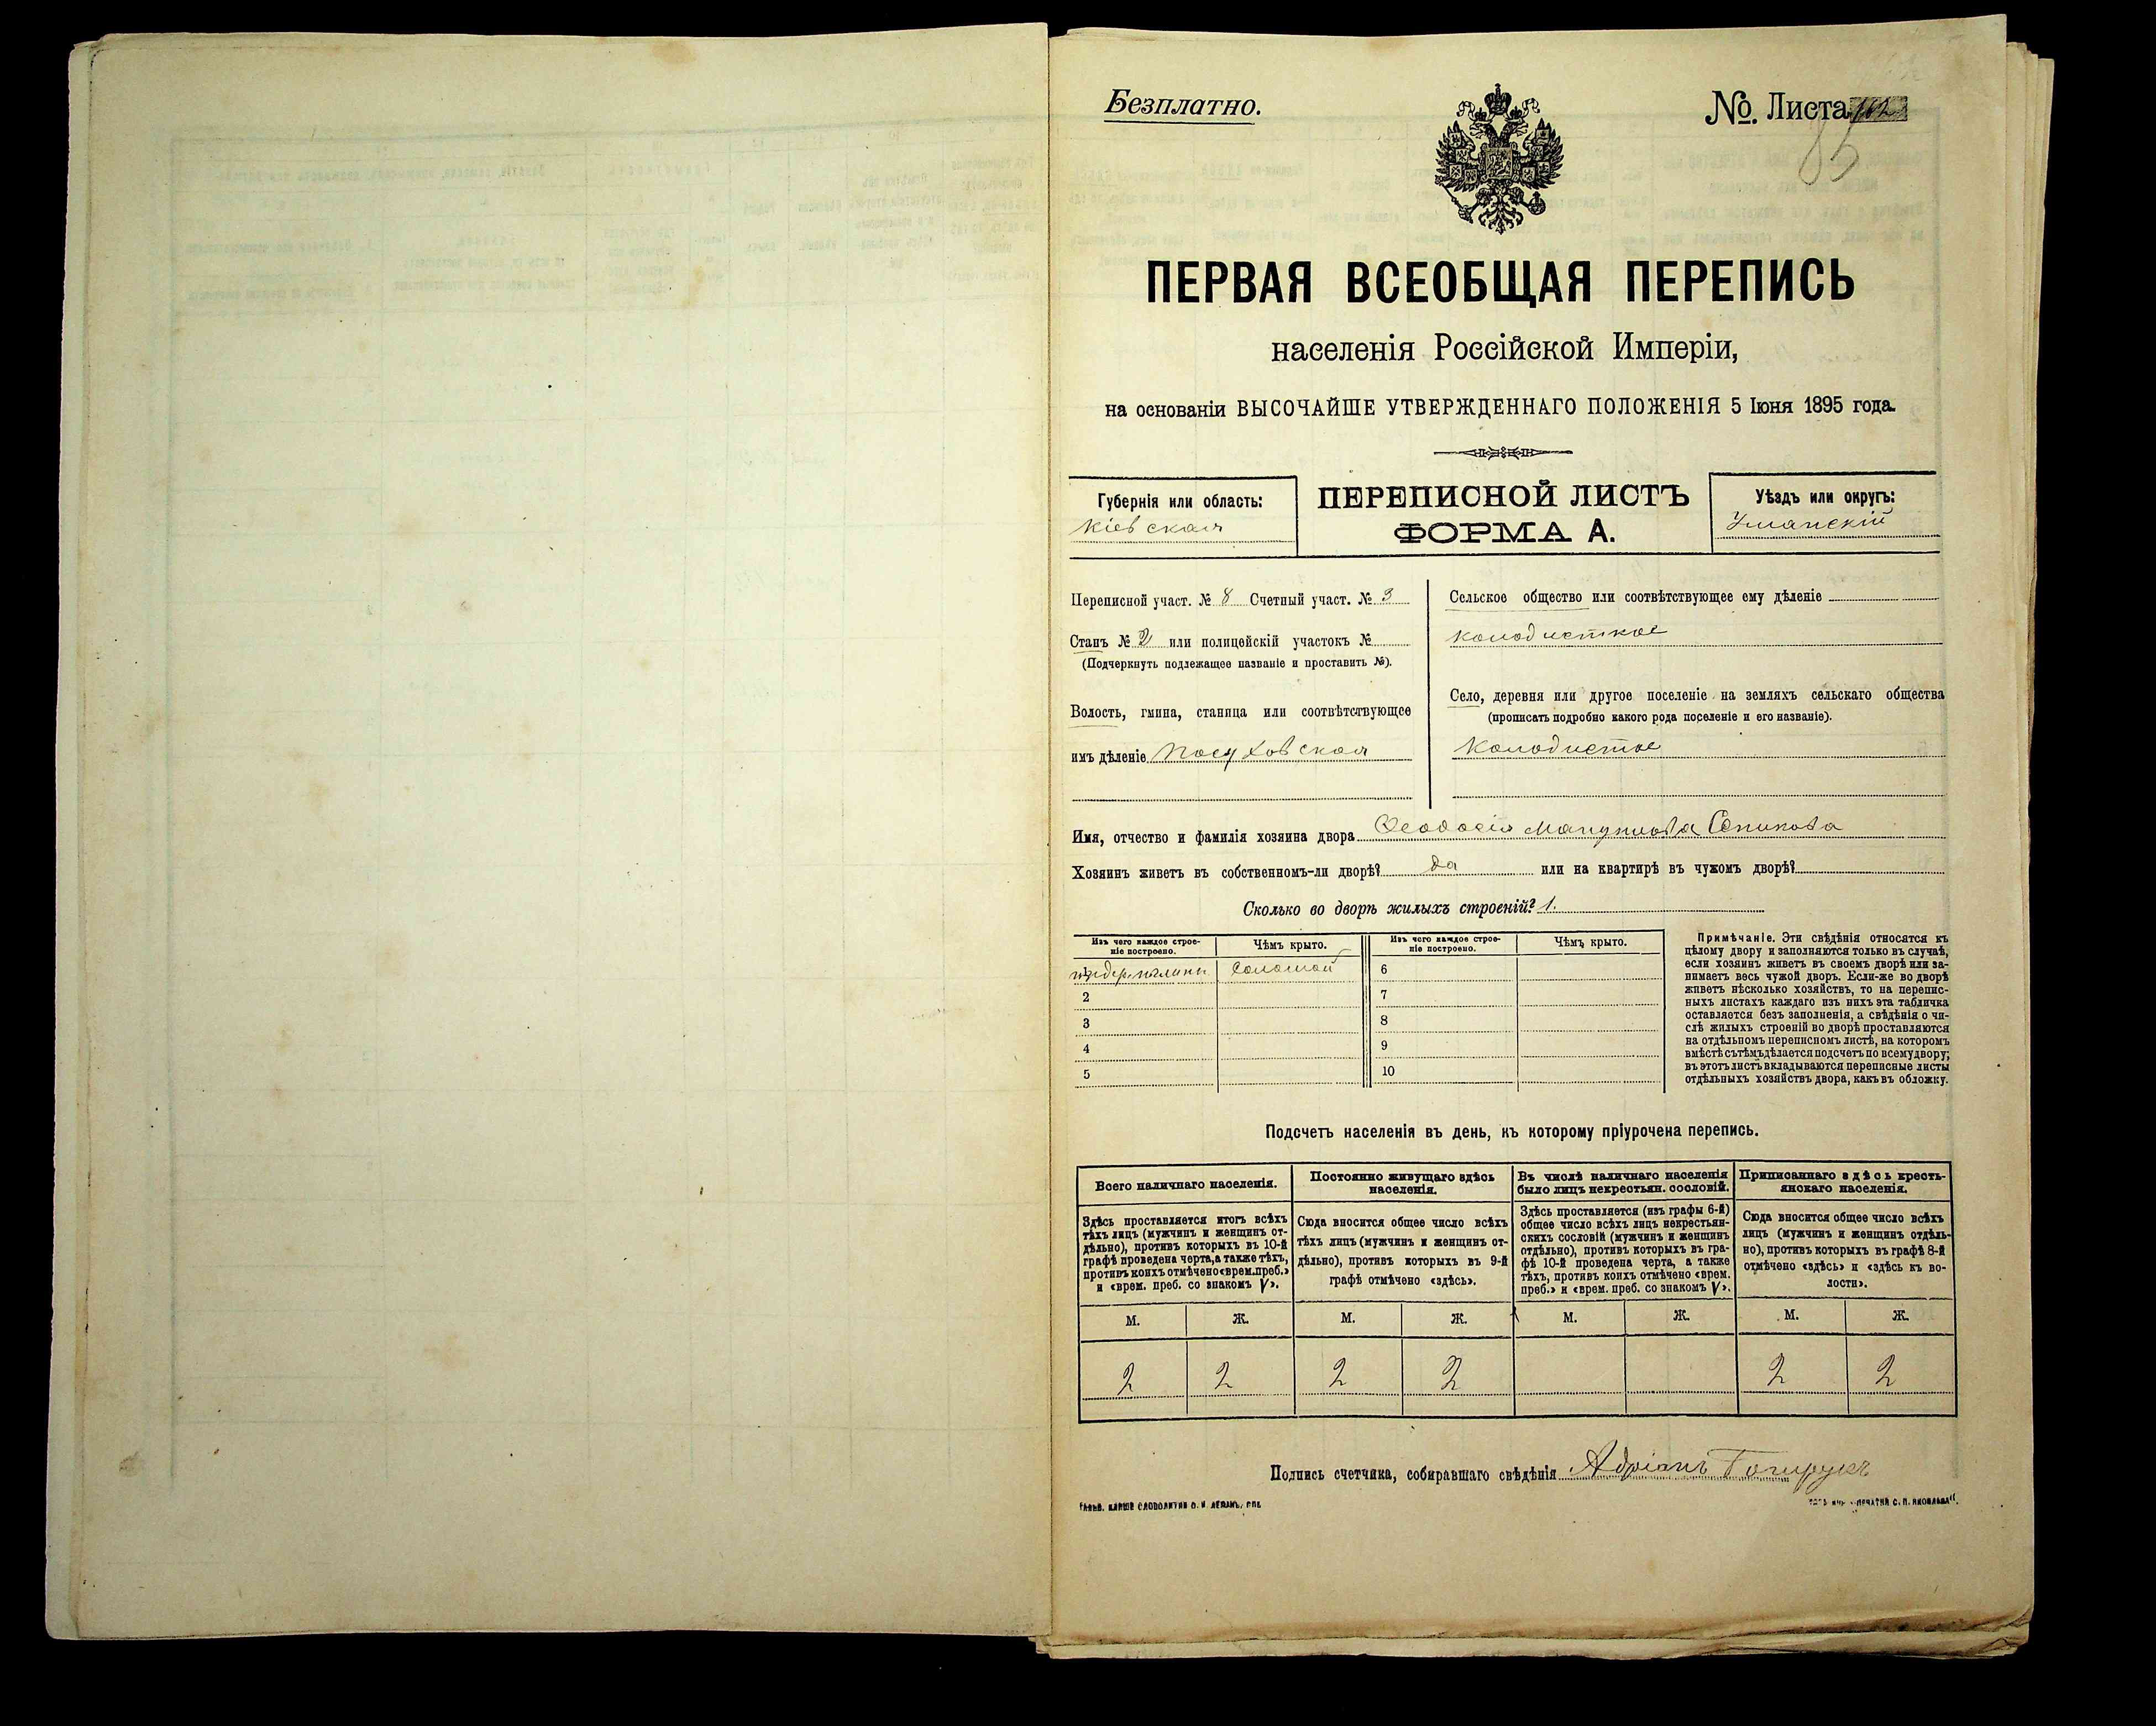 Безплатно.
№. Листа
85
ПЕРВАЯ ВСЕОБЩАЯ ПЕРЕПИСЬ
населенія Россійской Имперіи,
на основаніи ВЫСОЧАЙШЕ УТВЕРЖДЕННАГО ПОЛОЖЕНІЯ 5 Іюня 1895 года.
Губернія или область:
Кіевская
ПЕРЕПИСНОЙ ЛИСТЪ
ФОРМА А.
Уѣздъ или округъ:
Уманскій
Переписной участ. № 8 Счетный участ. № 3
Станъ № 2 или полицейскій участокъ №
(Подчеркнуть подлежащее названіе и проставить №).
Волость, гмина, станица или соотвѣтствующее
имъ дѣленіе Посуховская
Сельское общество или соотвѣтствующее ему дѣленіе
Колодисткое
Село, деревня или другое поселеніе на земляхъ сельскаго общества
(прописать подробно какого рода поселеніе и его названіе).
Колодистое
Имя, отчество и фамилія хозяина двора Феодосія Мануилова
Хозяинъ живетъ въ собственномъ-ли дворѣ? да или на квартирѣ въ чужомъ дворѣ?
Сколько во дворѣ жилыхъ строеній? 1.
Изъ чего каждое строе-
ніе построено.
Чѣмъ крыто.
Изъ чего каждое строе-
ніе построено.
Чѣмъ крыто.
Соломой
6
2
7
3
8
4
9
5
10
Примѣчаніе. Эти свѣдѣнія относятся къ
цѣлому двору и заполняются только въ случаѣ,
если хозяинъ живетъ въ своемъ дворѣ или за-
нимаетъ весь чужой дворъ. Если-же во дворѣ
живетъ нѣсколько хозяйствъ, то на перепис-
ныхъ листахъ каждаго изъ нихъ эта табличка
оставляется безъ заполненія, а свѣдѣнія о чи-
слѣ жилыхъ строеній во дворѣ проставляются
на отдѣльномъ переписномъ листѣ, на которомъ
вмѣстѣ съ тѣмъ дѣлается подсчетъ по всему двору;
въ этотъ листъ вкладываются переписные листы
отдѣльныхъ хозяйствъ двора, какъ въ обложку.
Подсчетъ населенія въ день, къ которому пріурочена перепись.
Всего наличнаго населенія.
Постоянно живущаго здѣсь
населенія.
Въ числѣ наличнаго населенія
было лицъ некрестьян. сословій.
Приписаннаго здѣсь кресть-
янскаго населенія.
Здѣсь проставляется итогъ всѣхъ
тѣхъ лицъ (мужчинъ и женщинъ от-
дѣльно), противъ которыхъ въ 10-й
графѣ проведена черта, а также тѣхъ,
противъ коихъ отмѣчено «врем. преб.»
и «врем. преб. со знакомъ V».
Сюда вносится общее число всѣхъ
тѣхъ лицъ (мужчинъ и женщинъ от-
дѣльно), противъ которыхъ въ 9-й
графѣ отмѣчено «здѣсь».
Здѣсь проставляется (изъ графы 6-й)
общее число всѣхъ лицъ некрестьян-
скихъ сословій (мужчинъ и женщинъ
отдѣльно), противъ которыхъ въ гра-
фѣ 10-й проведена черта, а также
тѣхъ, противъ коихъ отмѣчено «врем.
преб.» и «врем. преб. со знакомъ V».
Сюда вносится общее число всѣхъ
лицъ (мужчинъ и женщинъ отдѣль-
но), противъ которыхъ въ графѣ 8-й
отмѣчено «здѣсь» и «здѣсь къ во-
лости».
М. Ж. М. Ж. М. Ж. М. Ж.
2 2 2 2 2 2
Подпись счетчика, собиравшаго свѣдѣнія Адріанъ